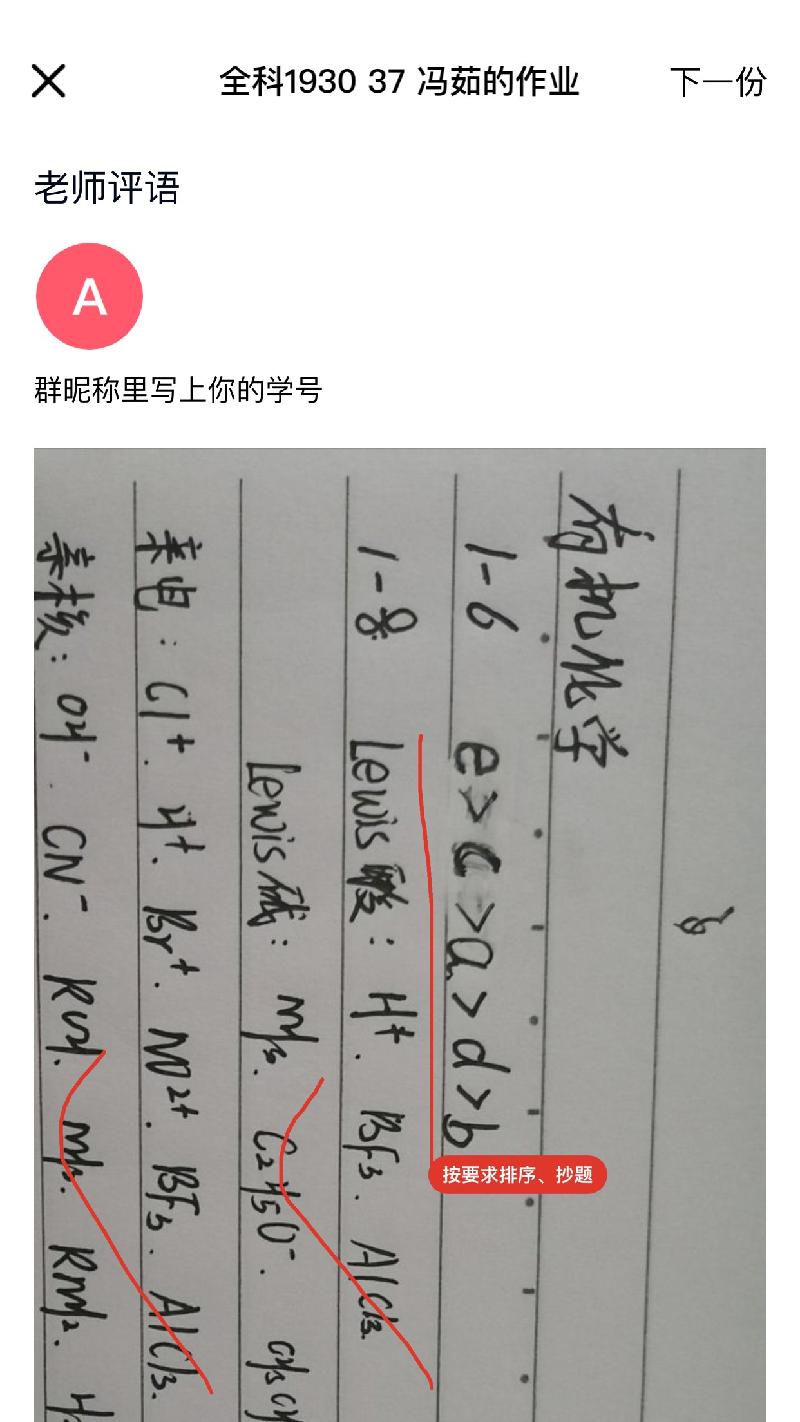 全科1930 37 冯茹的作业
下一份
老师评语
A
群昵称里写上你的学号
有机化学
1-6 e>c>a>d>b
按要求排序、抄题
1-8 Lewis酸: H⁺. BF₃. AlCl₃.
Lewis碱: NH₃. C₂H₅O⁻.
亲电: Cl⁺. H⁺. Br⁺. NO²⁺. BF₃. AlCl₃.
亲核: OH⁻. CN⁻. ROH. NH₃. RNH₂.